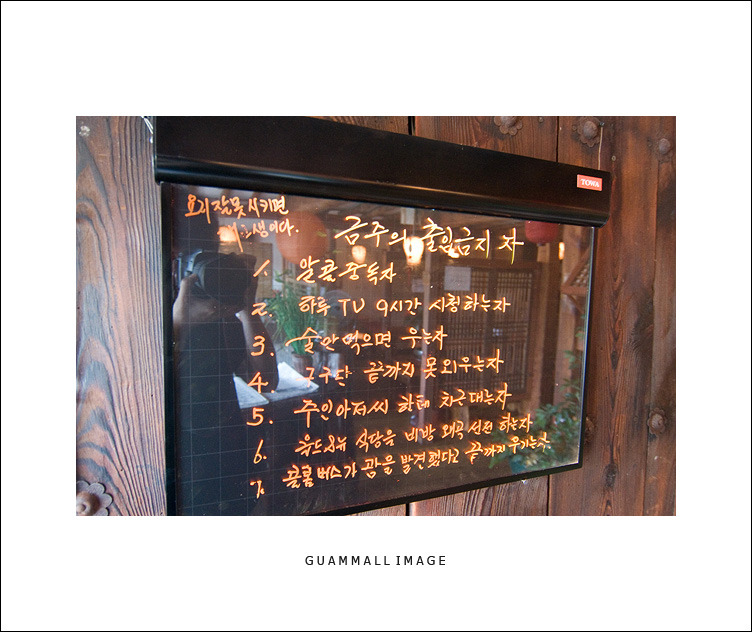 TOWA
요리 잘못 시키면
생이다.
금주의 출입금지 자
1. 알콜중독자
2. 하루 TV 9시간 시청하는자
3. 술안먹으면 우는자
4. 구구단 끝까지 못외우는자
5. 주인아저씨 한테 치근대는자
6. 올드&뉴 식당을 비방 왜곡 선전 하는자
7. 콜롬버스가 괌을 발견했다고 끝까지 우기는자
GUAMMALL IMAGE